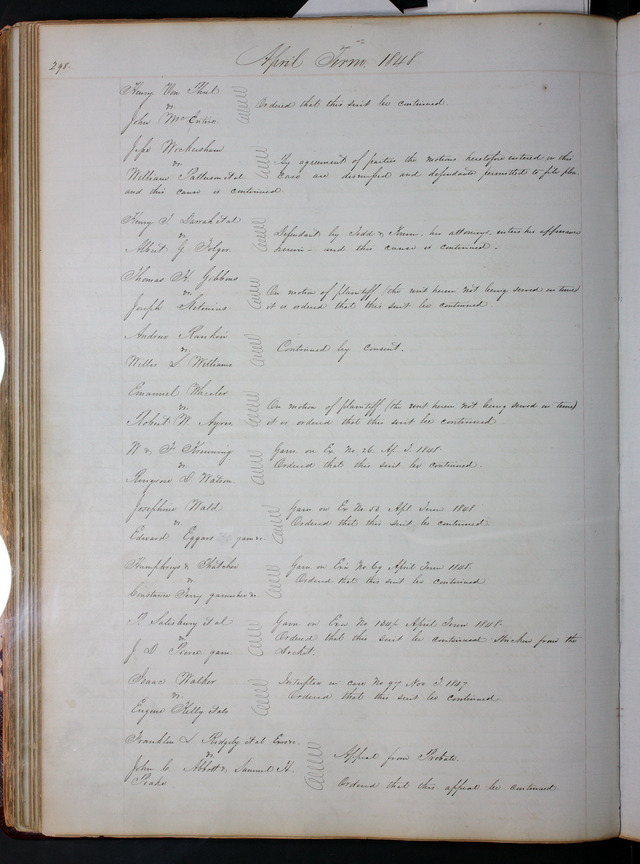 298.
April Term 1848
Henry Von Phul
vs
John McEntire
Ordered that this suit be continued.
Wickersham
vs
William Patterson et al
By agreement of parties the motions heretofore entered in this
case are dismissed and defendants permitted to file plea
and this cause is continued.
Henry S Darrah et al
vs
Albert G Folger
Defendant by Todd & Krum, his attorney, enters his appearance
herein and this cause is continued.
Thomas H. Gibbons
vs
Joseph
On motion of plaintiff (the writ herein not being served in time)
it is ordered that this suit be continued
Andrew Rankin
vs
Willis L Williams
Continued by consent.
Emanuel Wheeler
vs
Robert W Ayres
On motion of plaintiff (the writ herein not being served in time)
it is ordered that this suit be continued.
W & F
vs
D Watson
Garn on Ex. No 26. Ap. T 1848
Ordered that this suit be continued.
Josephine Wald
vs
Edward Eggars garn &c.
Garn on Ex No 52 Apl Term 1848
Ordered that this suit be continued.
Humphreys & Thatcher
vs
Perry garnishee &c
Garn on Exn No 69 April Term 1848.
Ordered that this suit be continued
P. Salisbury et al
vs
J D garn.
Garn on Exn No April Term 1848.
Ordered that this suit be continued Stricken from the
Docket.
Isaac Walker
vs
Eugene Kelly et als
in case No 97 Nov. T 1847
Ordered that this suit be continued
Franklin L Ridgely et al Exrs &c
vs
John C Abbott & Samuel H.
Peake
Appeal from Probate.
Ordered that this appeal be continued